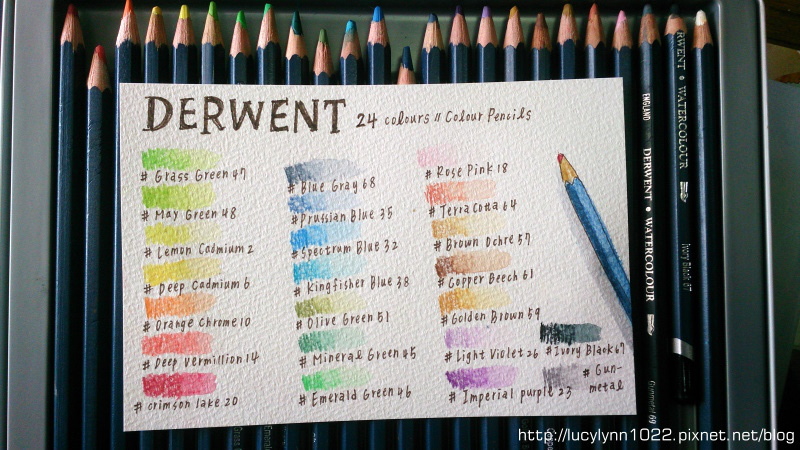 DERWENT 24 colours // Colour Pencils
# Grass Green 47
# May Green 48
# Lemon Cadmium 2
# Deep Cadmium 6
# Orange Chrome 10
# Deep Vermillion 14
# crimson lake 20
# Blue Gray 68
# Prussian Blue 35
# Spectrum Blue 32
# Kingfisher Blue 38
# Olive Green 51
# Mineral Green 45
# Emerald Green 46
# Rose Pink 18
# Terracotta 64
# Brown Ochre 57
# Copper Beech 61
# Golden Brown 59
# Light Violet 26
# Imperial purple 23
# Ivory Black 67
# Gun-
metal
ENGLAND DERWENT • WATERCOLOUR
Gunmetal 69
DERWENT • WATERCOLOUR
Ivory Black 67
http://lucylynn1022.pixnet.net/blog